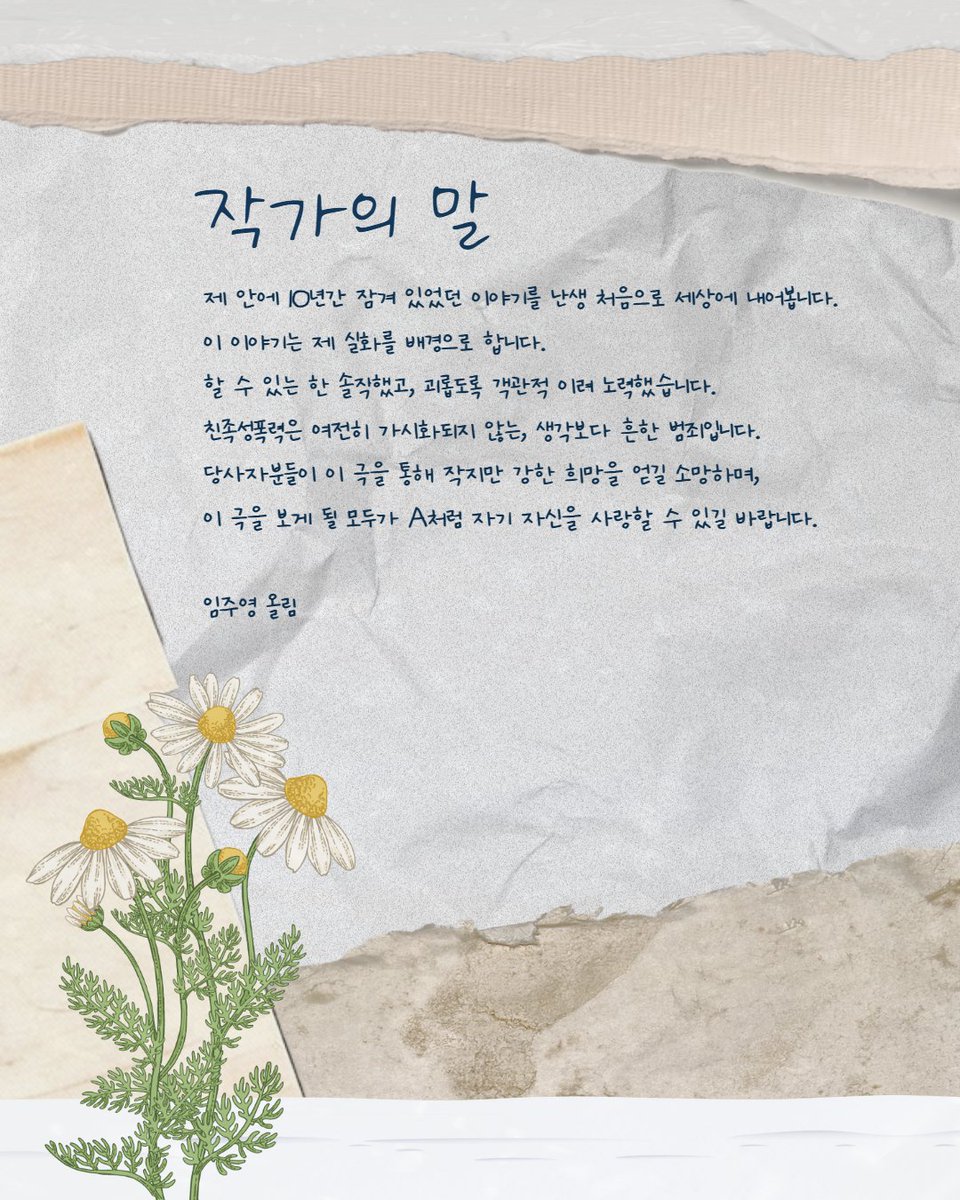 작가의 말
제 안에 10년간 잠겨 있었던 이야기를 난생 처음으로 세상에 내어봅니다.
이 이야기는 제 실화를 배경으로 합니다.
할 수 있는 한 솔직했고, 괴롭도록 객관적 이려 노력했습니다.
친족성폭력은 여전히 가시화되지 않는, 생각보다 흔한 범죄입니다.
당사자분들이 이 극을 통해 작지만 강한 희망을 얻길 소망하며,
이 극을 보게 될 모두가 A처럼 자기 자신을 사랑할 수 있길 바랍니다.
임주영 올림